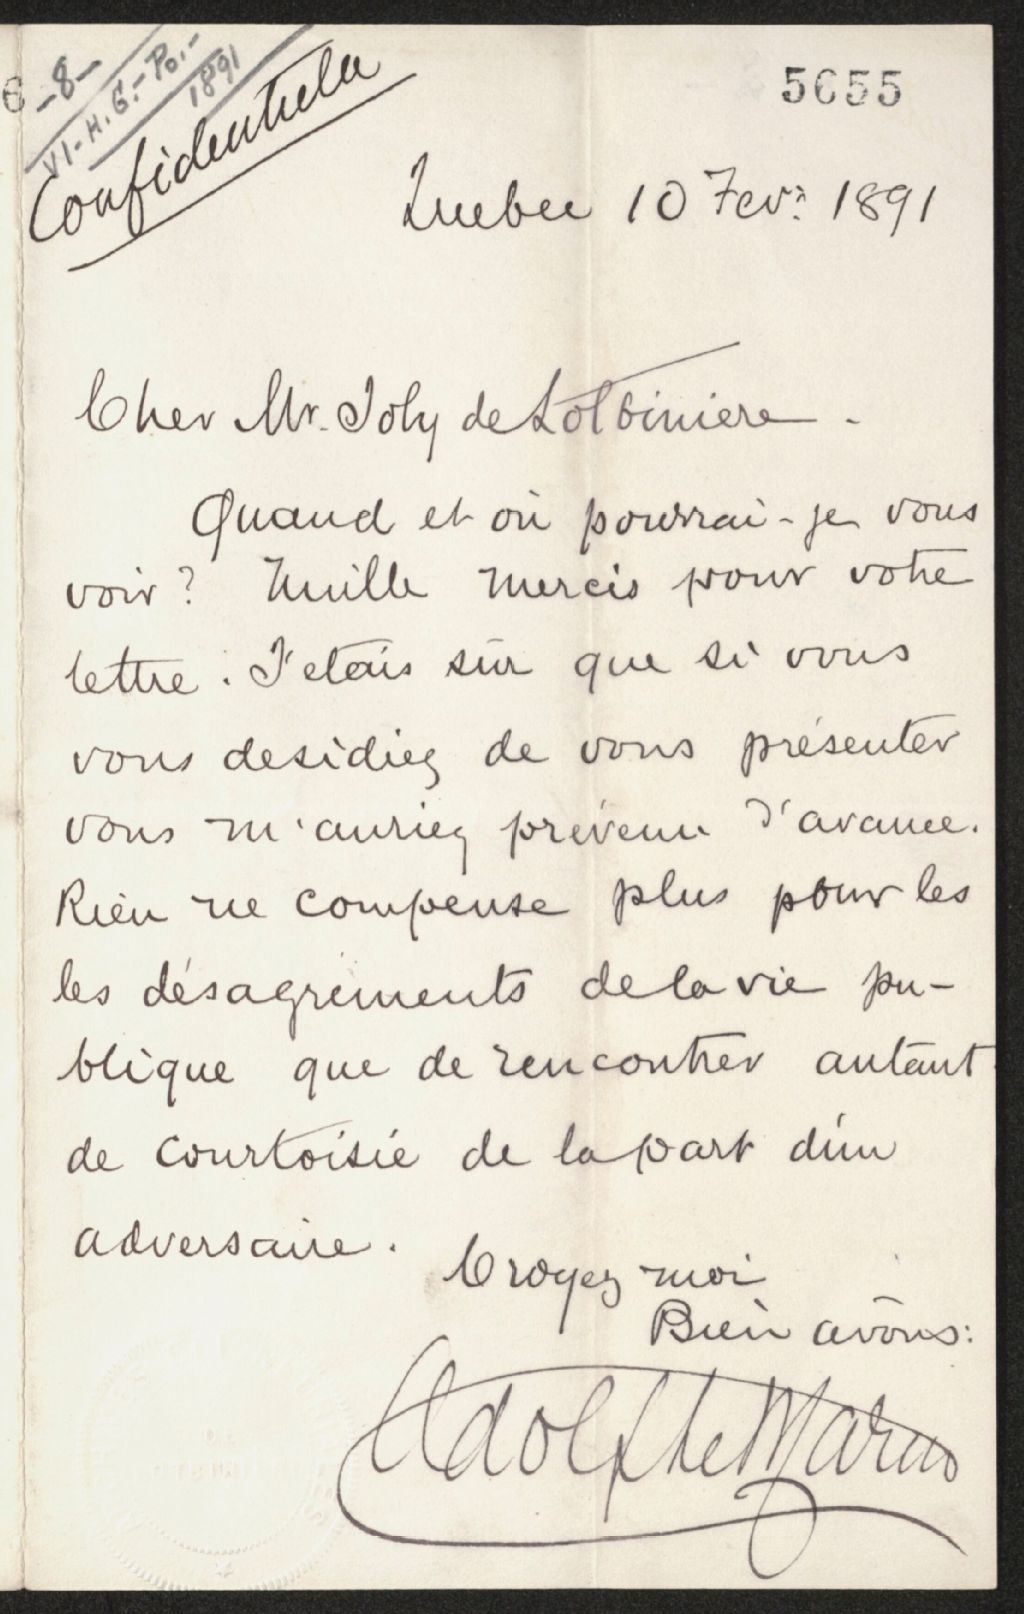 6 -8-
VI.-H.G.-Po.-
1891
Confidentiela
5655
Quebec 10 Fevr: 1891
Cher Mr. Joly de Lotbiniere -
Quand et où pourrai-je vous
voir? Mille mercis pour votre
lettre. J'etais sûr que si vous
vous desidiez de vous présenter
vous m'auriez prévenu d'avance.
Rien ne compense plus pour les
les désagréments de la vie pu-
blique que de rencontrer autant
de courtoisie de la part d'un
adversaire.
Croyez moi
Bien àvous:
Adolphe Marau